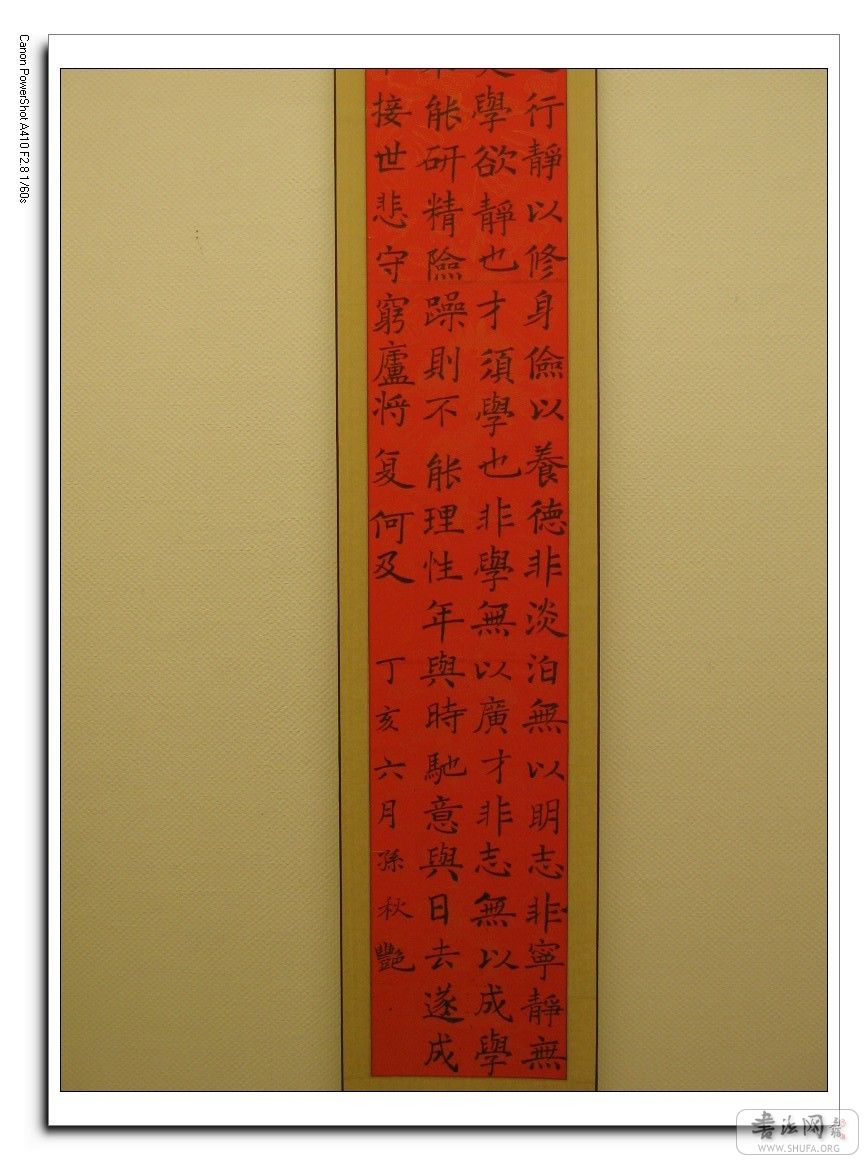 行靜以修身儉以養德非淡泊無以明志非寧靜無
學欲靜也才須學也非學無以廣才非志無以成學
能研精險躁則不能理性年與時馳意與日去遂成
接世悲守窮廬将复何及 丁亥六月孫秋艷
Canon PowerShot A410 F2.8 1/60s
書法网
WWW.SHUFA.ORG